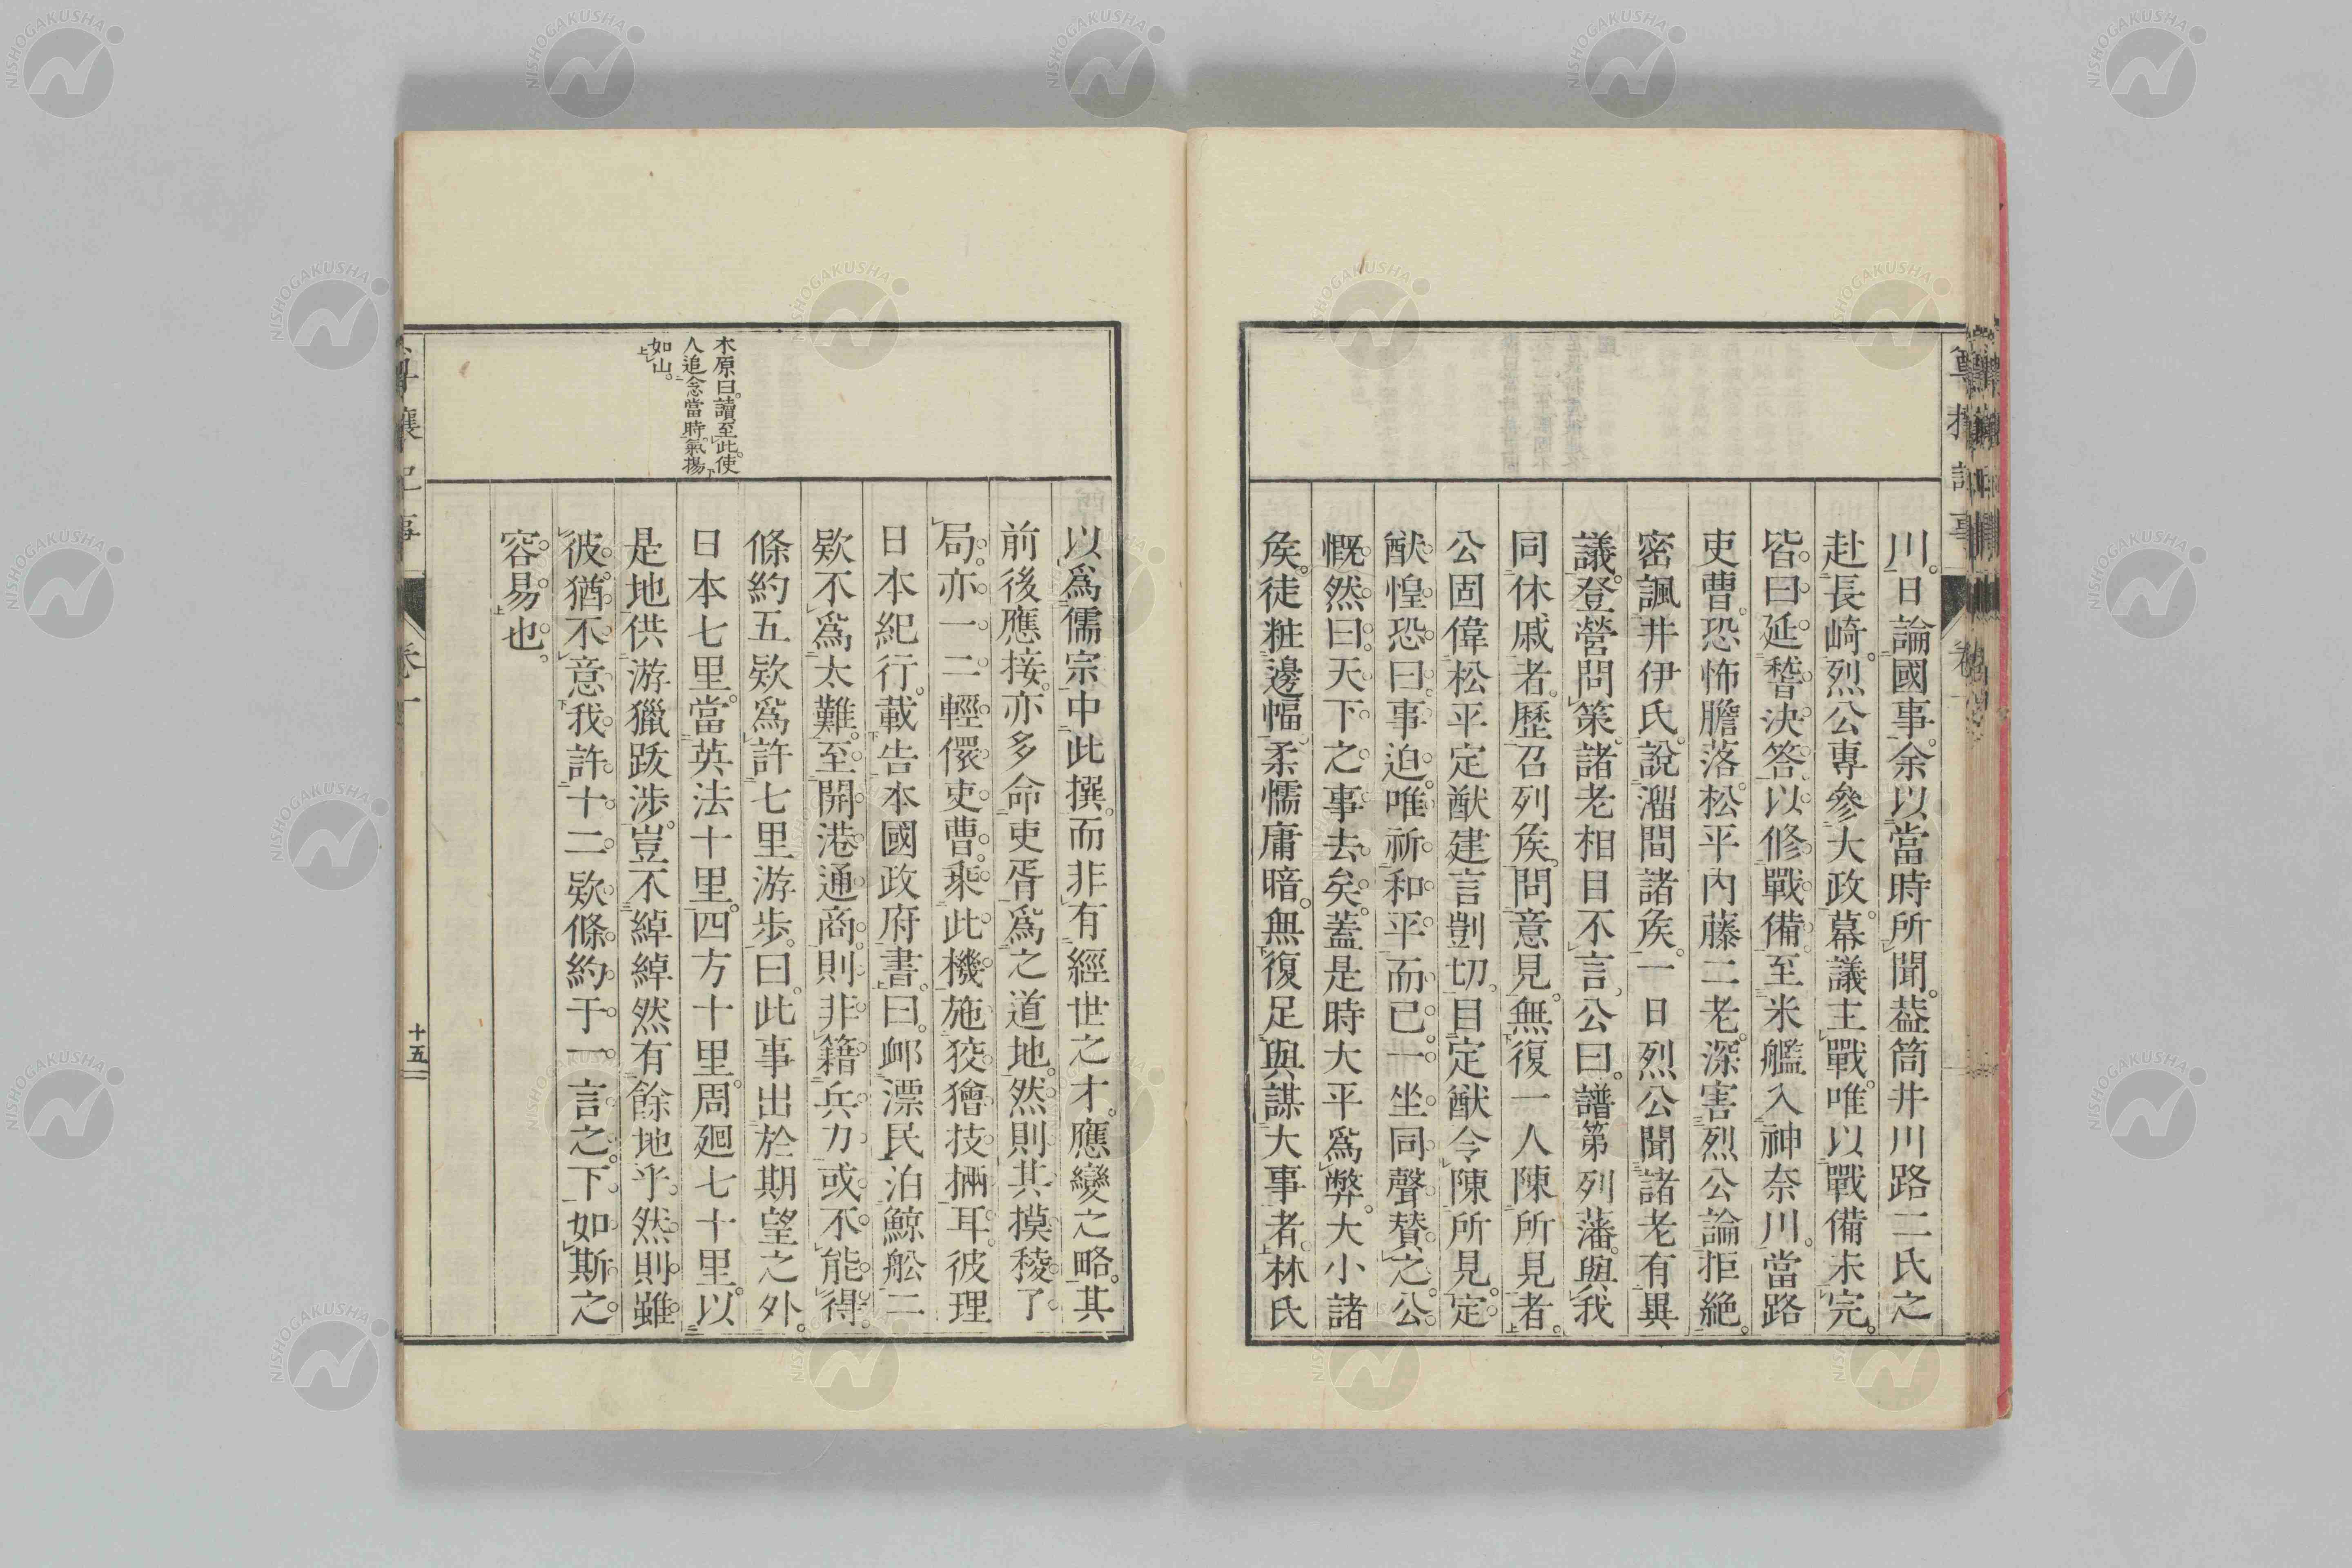 川。日論國事。余以當時所聞。葢筒井川路二氏之
赴長崎。烈公專參大政。幕議主戰。唯以戰備未完。
皆曰。延詧決答。以修戰備。至米艦入神奈川。當路
吏曹。恐怖膽落。松平內藤二老。深害烈公論拒絶。
密諷井伊氏。說溜間諸矦。一日烈公聞諸老有異
議。登營問策。諸老相目不言。公曰。譜第列藩。與我
同休戚者。歷召列矦。問意見。無復一人陳所見者。
公固偉松平定猷建言剴切。目定猷令陳所見。定
猷惶恐曰。事迫。唯祈和平而已。一坐同聲賛之。公
慨然曰。天下之事去矣。蓋是時大平爲弊。大小諸
矦。徒粧邊幅。柔懦庸暗。無復足與謀大事者。林氏
以爲儒宗中此撰。而非有經世之才。應變之略。其
前後應接。亦多命吏胥爲之道地。然則其摸稜了
局。亦一二輕儇吏曹。乘此機施狡獪技倆耳。彼理
日本紀行。載告本國政府書。曰。邮漂民泊鯨舩二
欵不爲太難。至開港通商。則非籍兵力。或不能得
條約五欵爲許七里游步。曰。此事出於期望之外。
日本七里。當英法十里。四方十里。周廻七十里。以
是地供游獵跋渉。豈不綽綽然有餘地乎。然則雖
彼。猶不意我許十二欵條約于一言之下。如斯之
容易也。
木原曰。讀至此。使
人追念當時。氣揚
如山。
十五